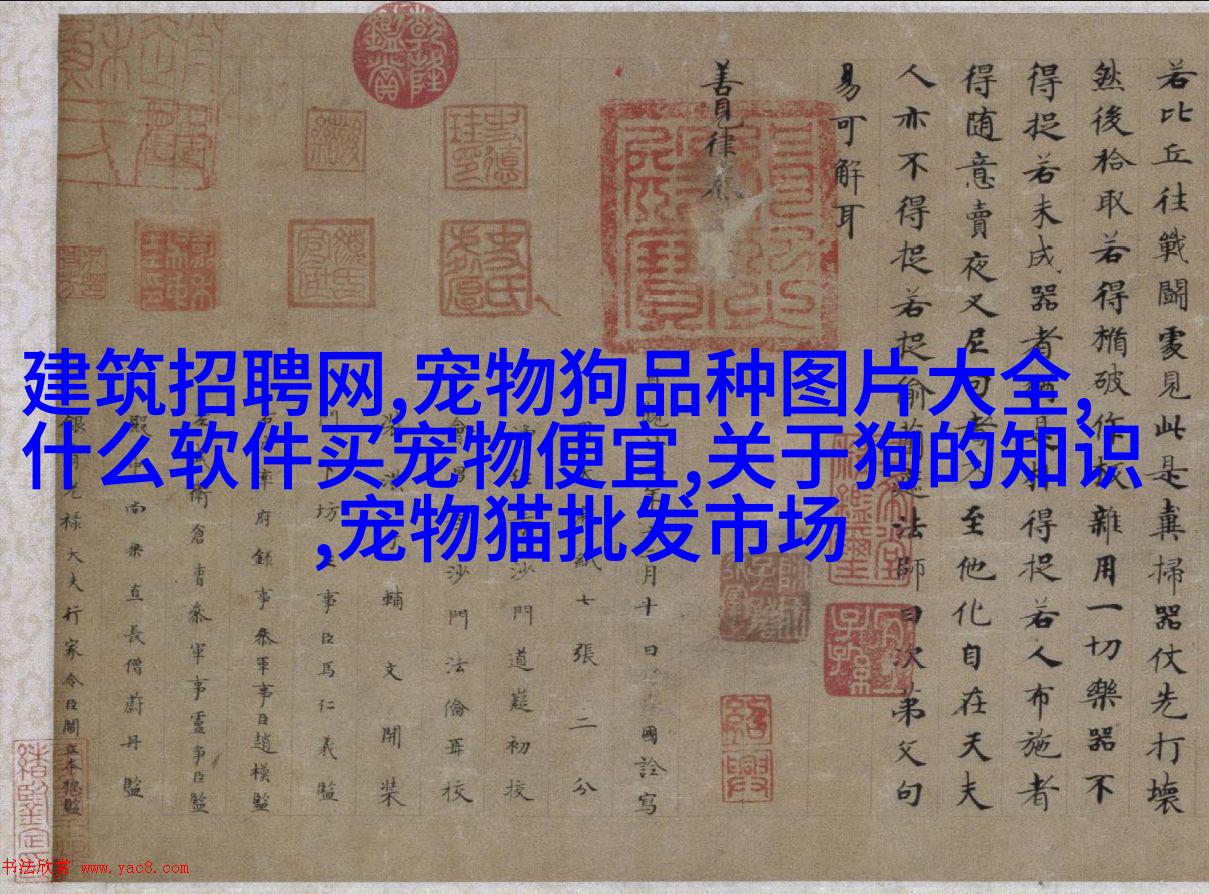 建筑招聘网,宠物狗品种图片大全,
什么软件买宠物便宜,关于狗的知识
,宠物猫批发市场
若比丘往戰鬪處見此是糞掃器仗先打壞
然後拾取若得楯破作板雜用一切樂器不
得捉若未成器者得捉若人布施者
得随意賣夜叉尼至他化自在天夫
人亦不得捉若捉偷法師曰次第父句
易可解耳
善見律
月十日國詮寫
紙七張二分
沙門道嶷初校
沙門法倫再校
輔文開装
坊事臣馬仁義監
府録事參軍事臣趙模監
衛倉曹參軍事靈爭臣監
殿中尚乘直長僧蔚丹監
銀青光禄大夫行家令臣閻立本總監
乾隆鑑賞
书法欣赏 www.yac8.com